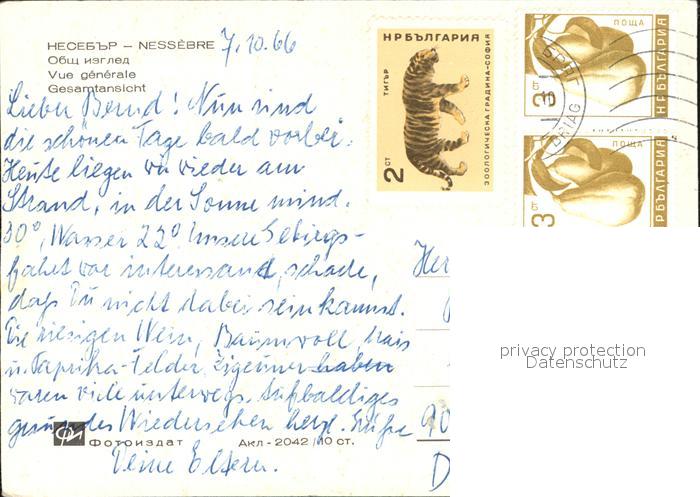 НЕСЕБЪР – NESSÈBRE 7.10.66
Общ изглед
Vue générale
Gesamtansicht
Lieber Bernd! Nun sind
die schönen Tage bald vorbei.
Heute liegen wir wieder am
Strand, in der Sonne mind.
30°, Wasser 22°. Unsere Gebirgs-
fahrt war interessant, schade,
daß Du nicht dabei sein kannst.
Die riesigen Wein, Baumwoll, Mais
u. Paprika-Felder. Zigeuner haben
waren viele unterwegs. Auf baldiges
gesundes Wiedersehen herzl. Grüße
Deine Eltern.
Фотоиздат Акл-2042/10 ст.
НР БЪЛГАРИЯ
ТИГЪР
2 СТ
ЗООЛОГИЧЕСКА ГРАДИНА-СОФИЯ
ПОЩА
3
НР БЪЛГАРИЯ
ПОЩА
3
НР БЪЛГАРИЯ
Her
90
D
privacy protection
Datenschutz